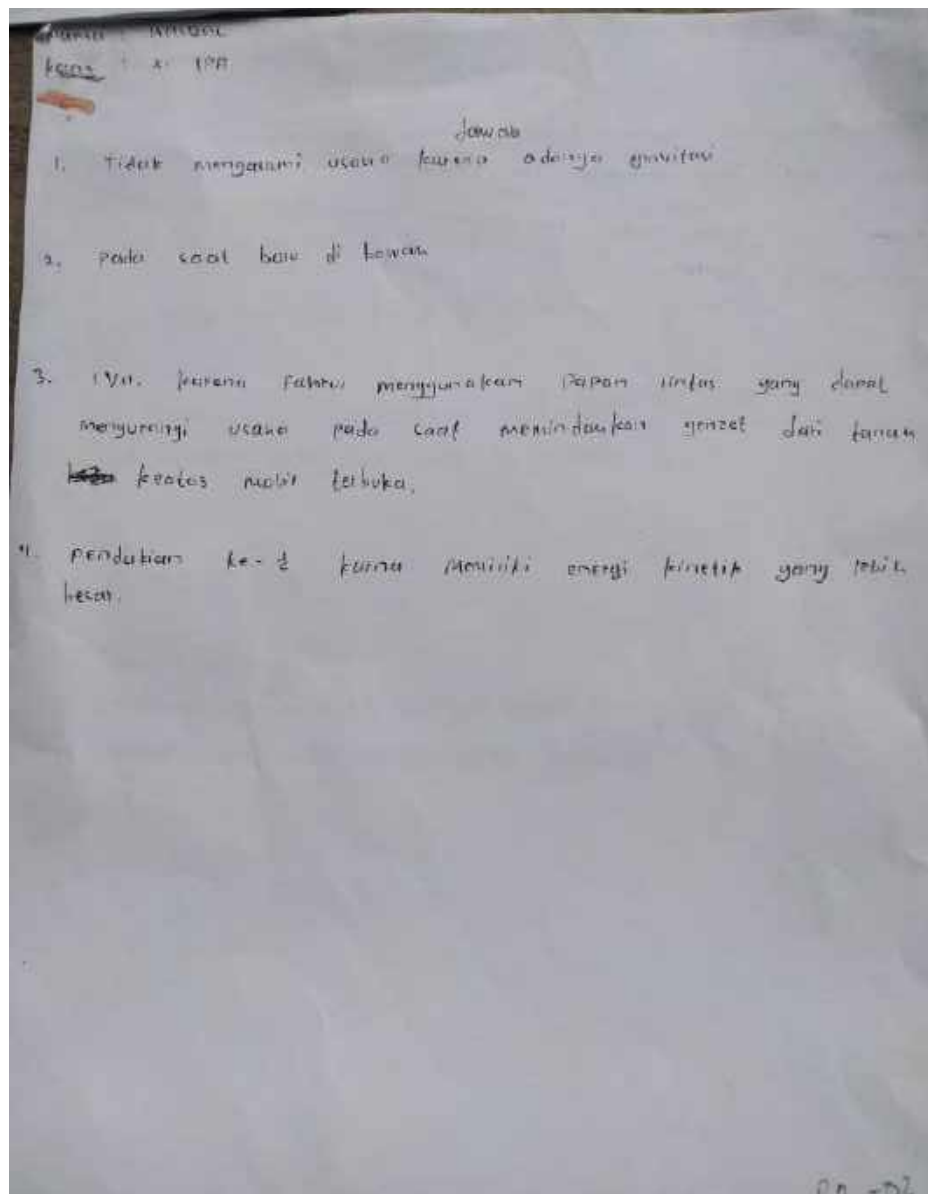 kelas : X. IPA
Jawab
1. Tidak mengalami usaha karena adanya gravitasi
2. Pada saat batu di bawah
3. iya. karena Fahru menggunakan papan lintas yang dapat
mengurangi usaha pada saat memindahkan genzet dari tanah
keatas mobil terbuka.
4. Pendakian ke- karna memiliki energi kinetik yang lebih
besar.